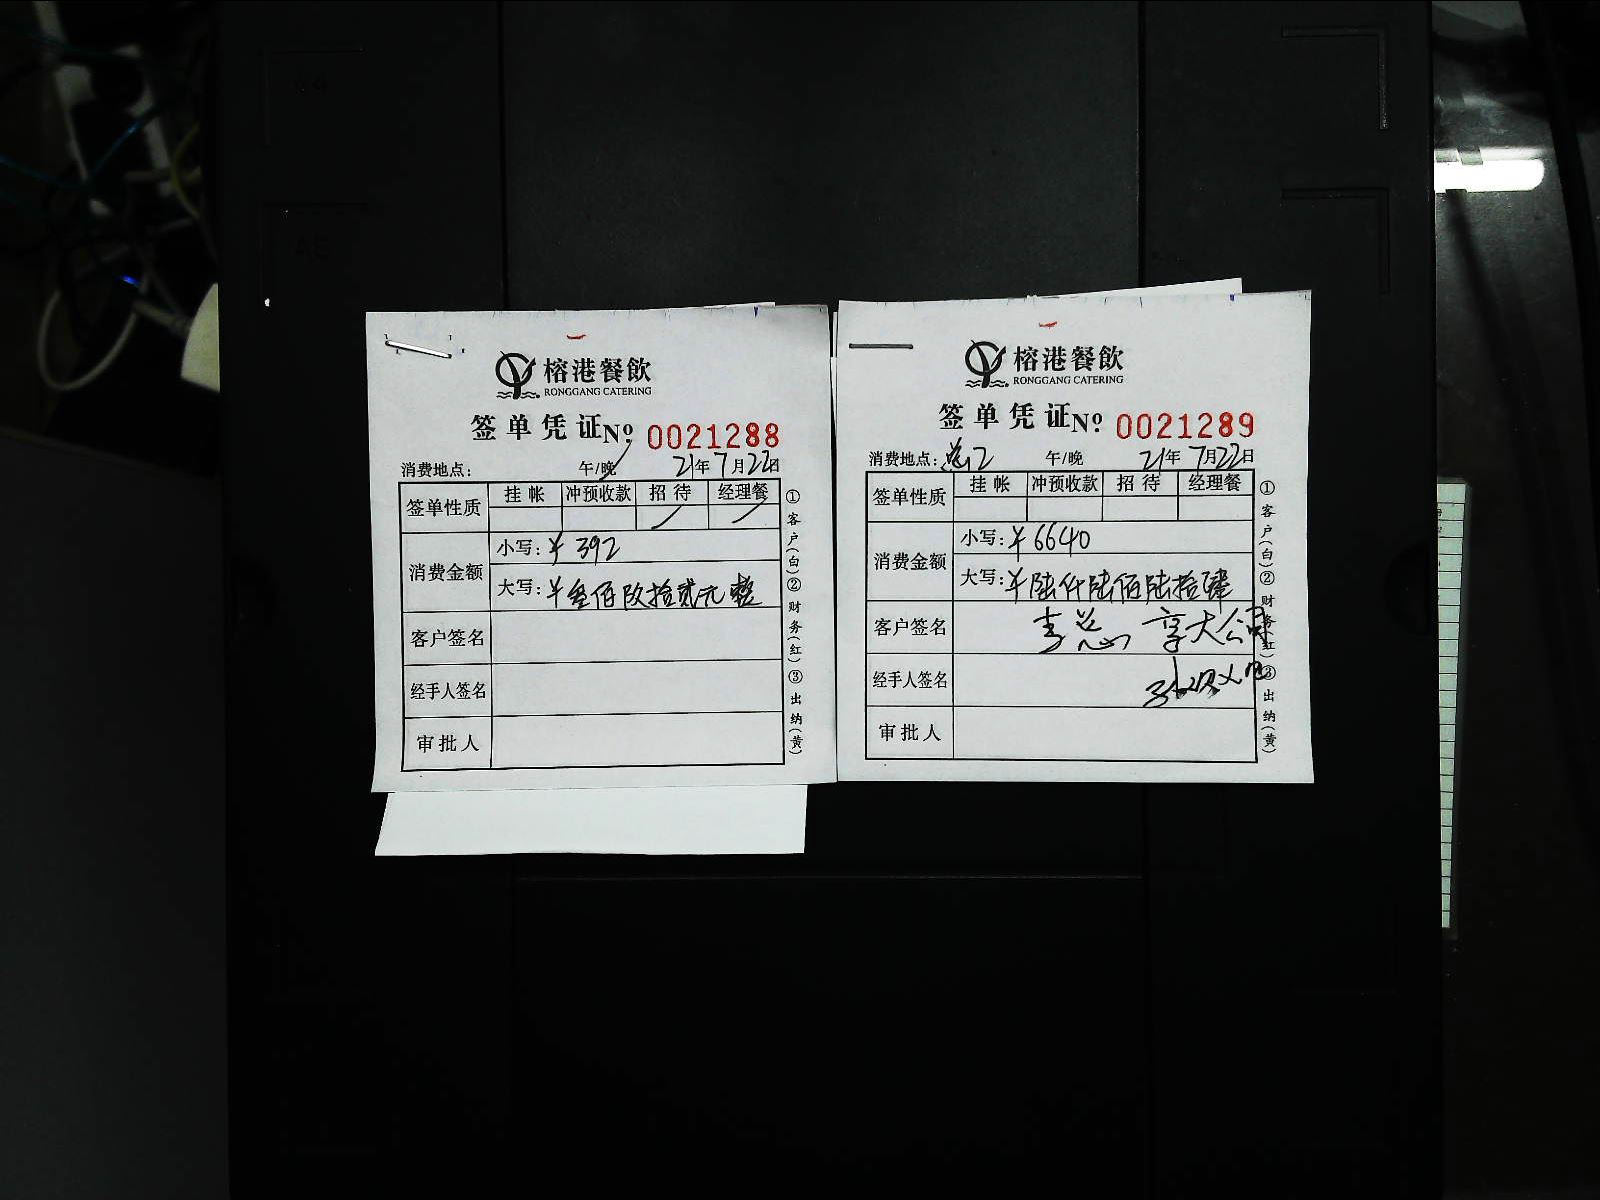 榕港餐飲
RONGGANG CATERING
签单凭证 Nº 0021288
消费地点： 午/晚 21年7月22日
签单性质 挂帐 冲预收款 招待 经理餐
消费金额 小写：¥ 392
大写：¥叁佰玖拾贰元整
客户签名
经手人签名
审批人
①客户(白)②财务(红)③出纳(黄)
榕港餐飲
RONGGANG CATERING
签单凭证 Nº 0021289
消费地点：总2 午/晚 21年7月22日
签单性质 挂帐 冲预收款 招待 经理餐
消费金额 小写：¥6640
大写：¥陆仟陆佰陆拾肆
客户签名 李总 享大公司
经手人签名
审批人
①客户(白)②财务(红)③出纳(黄)